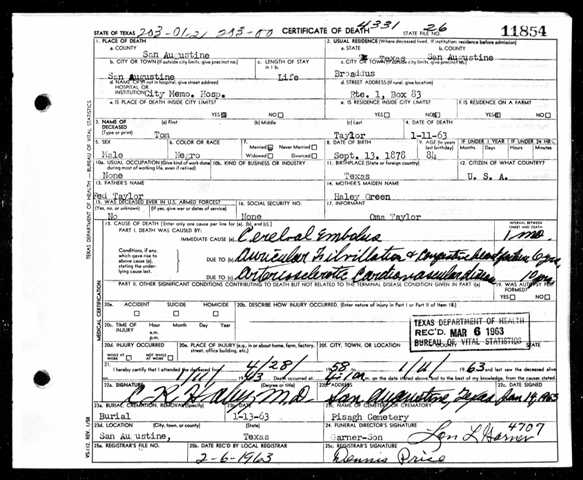 STATE OF TEXAS 203-01-21 203-00 CERTIFICATE OF DEATH 4331 STATE FILE NO. 26 11854
1. PLACE OF DEATH 2. USUAL RESIDENCE (Where deceased lived. If institution: residence before admission)
a. COUNTY San Augustine a. STATE Texas b. COUNTY San Augustine
b. CITY OR TOWN (If outside city limits, give precinct no.) c. LENGTH OF STAY in 1 b. c. CITY OR TOWN (If outside city limits, give precinct no.)
San Augustine Life Broaddus
d. NAME OF (If not in hospital, give street address) HOSPITAL OR INSTITUTION City Memo. Hosp. d. STREET ADDRESS (If rural, give location) Rte. 1, Box 83
e. IS PLACE OF DEATH INSIDE CITY LIMITS? e. IS RESIDENCE INSIDE CITY LIMITS? f. IS RESIDENCE ON A FARM?
YES NO YES NO YES NO
3. NAME OF DECEASED (Type or print) (a) First (b) Middle (c) Last 4. DATE OF DEATH
Tom Taylor 1-11-63
5. SEX 6. COLOR OR RACE 7. Married Never Married Widowed Divorced 8. DATE OF BIRTH 9. AGE (In years last birthday) IF UNDER 1 YEAR IF UNDER 24 HRS.
Months Days Hours Minutes
Male Negro Sept. 13, 1878 84
10a. USUAL OCCUPATION (Give kind of work done during most of working life, even if retired) 10b. KIND OF BUSINESS OR INDUSTRY 11. BIRTHPLACE (State or foreign country) 12. CITIZEN OF WHAT COUNTRY?
None Texas U. S. A.
13. FATHER'S NAME 14. MOTHER'S MAIDEN NAME
Taylor Haley Green
15. WAS DECEASED EVER IN U.S. ARMED FORCES? 16. SOCIAL SECURITY NO. 17. INFORMANT
(Yes, no, or unknown) (If yes, give war or dates of service)
No None Oma Taylor
18. CAUSE OF DEATH [Enter only one cause per line for (a), (b), and (c).] INTERVAL BETWEEN ONSET AND DEATH
PART I. DEATH WAS CAUSED BY:
IMMEDIATE CAUSE (a) Cerebral Embolus 1 mo.
Conditions, if any, which gave rise to above cause (a), stating the underlying cause last.
DUE TO (b) Auricular Fibrillation & Congestive heart failure 6 yrs
DUE TO (c) Arteriosclerotic Cardiovascular disease 10 yrs
PART II. OTHER SIGNIFICANT CONDITIONS CONTRIBUTING TO DEATH BUT NOT RELATED TO THE TERMINAL DISEASE CONDITION GIVEN IN PART I (a) 19. WAS AUTOPSY PERFORMED?
YES NO
20a. ACCIDENT SUICIDE HOMICIDE 20b. DESCRIBE HOW INJURY OCCURRED. (Enter nature of injury in Part I or Part II of item 18.)
20c. TIME OF INJURY Hour Month Day Year
a.m.
p.m.
TEXAS DEPARTMENT OF HEALTH
REC'D MAR 6 1963
BUREAU OF VITAL STATISTICS
20d. INJURY OCCURRED 20e. PLACE OF INJURY (e.g., in or about home, farm, factory, street, office building, etc.) 20f. CITY, TOWN, OR LOCATION COUNTY STATE
WHILE AT WORK NOT WHILE AT WORK
21. I hereby certify that I attended the deceased from 4/28/58 1/11/63 and last saw the deceased
1/11 63 Death occurred at m. on the date stated above, and to the best of my knowledge, from the causes stated.
22a. SIGNATURE (Degree or title) 22b. ADDRESS 22c. DATE SIGNED
M.D. San Augustine, Texas Jan 14, 1963
23a. BURIAL, CREMATION, REMOVAL (Specify) 23b. DATE 23c. NAME OF CEMETERY OR CREMATORY
Burial 1-13-63 Pisagh Cemetery
23d. LOCATION (City, town, or county) (State) 24. FUNERAL DIRECTOR'S SIGNATURE 4707
San Au ustine, Texas Garner-Son Lon L Garner
25a. REGISTRAR'S FILE NO. 25b. DATE REC'D BY LOCAL REGISTRAR 25c. REGISTRAR'S SIGNATURE
2-6-1963 Dennis Price
TEXAS DEPARTMENT OF HEALTH — BUREAU OF VITAL STATISTICS
MEDICAL CERTIFICATION